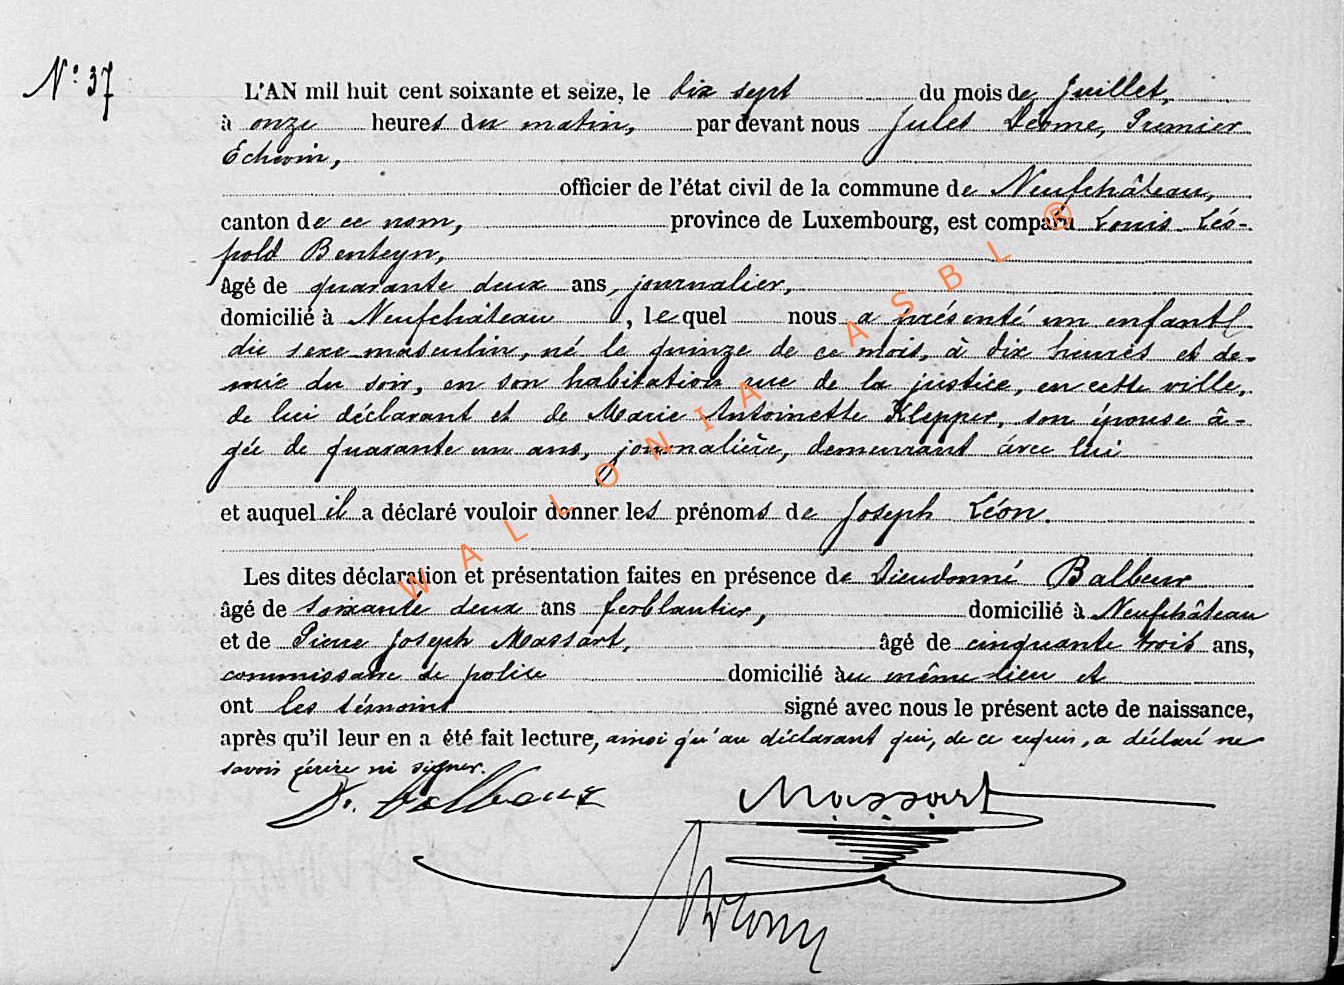 N° 37
L'AN mil huit cent soixante et seize, le dix sept du mois de Juillet,
à onze heures du matin, par devant nous Jules Déome, Premier
Echevin,
officier de l'état civil de la commune de Neufchâteau,
canton de ce nom, province de Luxembourg, est comparu Louis Léo-
pold Benteyn,
âgé de quarante deux ans, journalier,
domicilié à Neufchâteau, lequel nous a présenté un enfant
du sexe masculin, né le quinze de ce mois, à dix heures et de-
mie du soir, en son habitation rue de la justice, en cette ville,
de lui déclarant et de Marie Antoinette Klepper, son épouse â-
gée de quarante un ans, journalière, demeurant avec lui
et auquel il a déclaré vouloir donner les prénoms de Joseph Léon.
Les dites déclaration et présentation faites en présence de Dieudonné Balbeur
âgé de soixante deux ans ferblantier, domicilié à Neufchâteau
et de Pierre Joseph Massart, âgé de cinquante trois ans,
commissaire de police domicilié au même lieu et
ont les témoins signé avec nous le présent acte de naissance,
après qu'il leur en a été fait lecture, ainsi qu'au déclarant qui, de ce requis, a déclaré ne
savoir écrire ni signer.
D. Balbeur Massart
WALLONIA ASBL ®